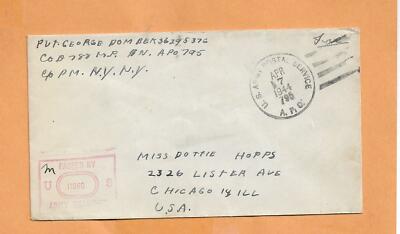 PVT. GEORGE DOMBEK 36395376
CO D 788 M.P. BN. APO 795
c/o P.M. N.Y. N.Y.
Free
U.S. ARMY POSTAL SERVICE
APR
7
1944
795
A.P.O.
MISS DOTTIE HOPPS
2326 LISTER AVE
CHICAGO 14 ILL
U.S.A.
PASSED BY
U S
ARMY